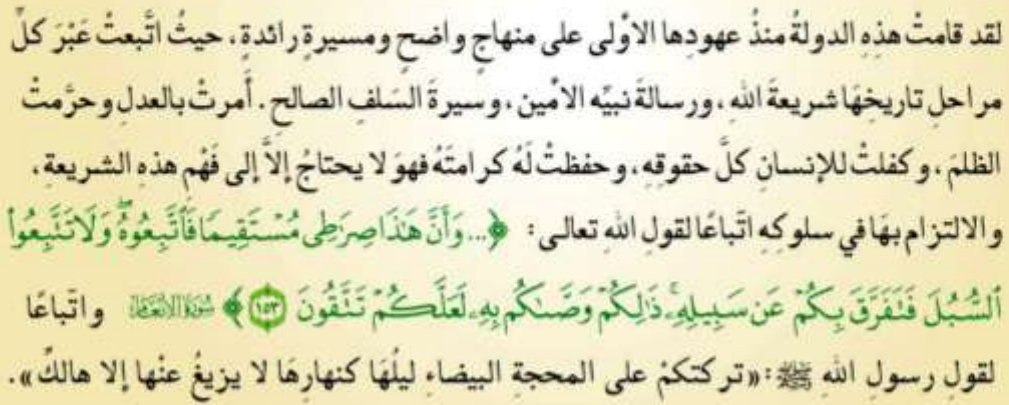 لقد قامتْ هذِهِ الدولةُ منذُ عهودِها الأولى على منهاجٍ واضحٍ ومسيرةٍ رائدةٍ. حيثُ اتَّبعتْ عَبْرَ كلِّ
مراحلِ تاريخِهَا شريعةَ اللهِ، ورسالةَ نبيِّه الأمين، وسيرةَ السَلفِ الصالح. أَمرتْ بالعدلِ وحرَّمتْ
الظلمَ، وكفلتْ للإنسانِ كلَّ حقوقِهِ، وحفظتْ لَهُ كرامتَهُ فهوَ لا يحتاجُ إلاَّ إلى فَهْمِ هذهِ الشريعةِ،
والالتزامِ بهَا في سلوكِهِ اتّباعًا لقولِ اللهِ تعالى: ﴿...وَأَنَّ هَٰذَا صِرَٰطِى مُسْتَقِيمًا فَٱتَّبِعُوهُ ۖ وَلَا تَتَّبِعُوا۟
ٱلسُّبُلَ فَتَفَرَّقَ بِكُمْ عَن سَبِيلِهِۦ ۚ ذَٰلِكُمْ وَصَّىٰكُم بِهِۦ لَعَلَّكُمْ تَتَّقُونَ ١٥٣﴾ سُورَةُ الأَنْعَامِ واتّباعًا
لقولِ رسولِ اللهِ ﷺ: «تركتكمْ على المحجةِ البيضاءِ ليلُهَا كنهارِهَا لا يزيغُ عنْها إلا هالكٌ».